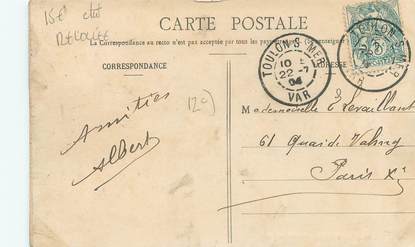 15€ état
CARTE POSTALE
La Correspondance au recto n'est pas acceptée par tous les pays
CORRESPONDANCE
ADRESSE
TOULON S MER
10
22-7
04
VAR
TOULON S MER
(20)
Amitiés
Albert
Mademoiselle E Levaillant
61 Quai de Valmy
Paris Xe